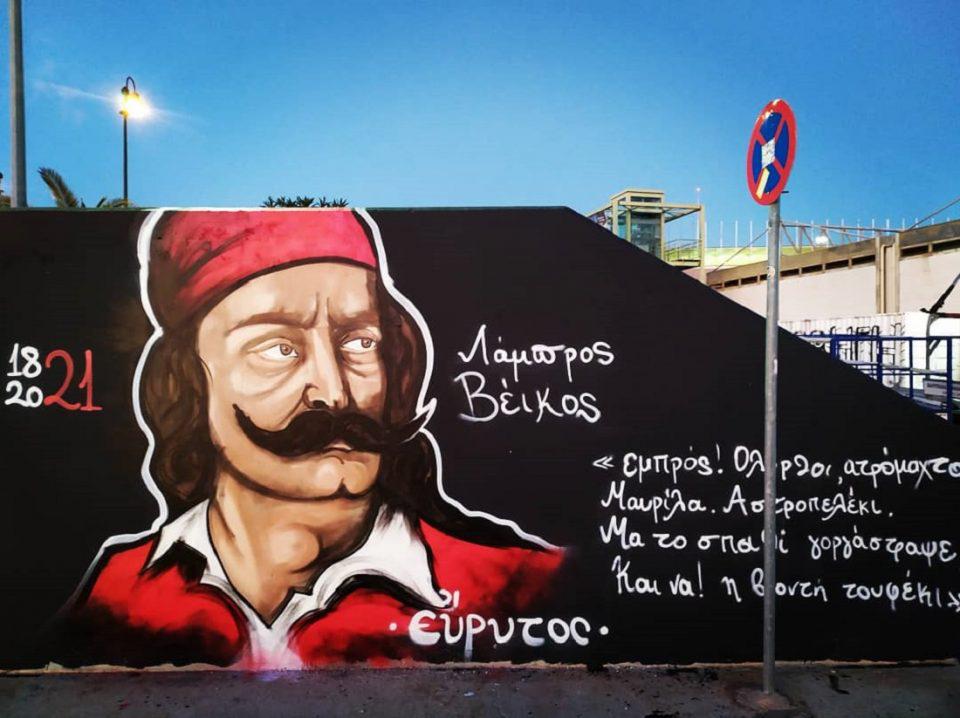 18
20 21
Λάμπρος
Βέικος
« εμπρός! ατρόμαχτο
Μαυρίλα. Αστροπελέκι.
Μα το σπαθί γοργάστραψε
Και να! η βροντή τουφέκι»
· εύρυτος ·